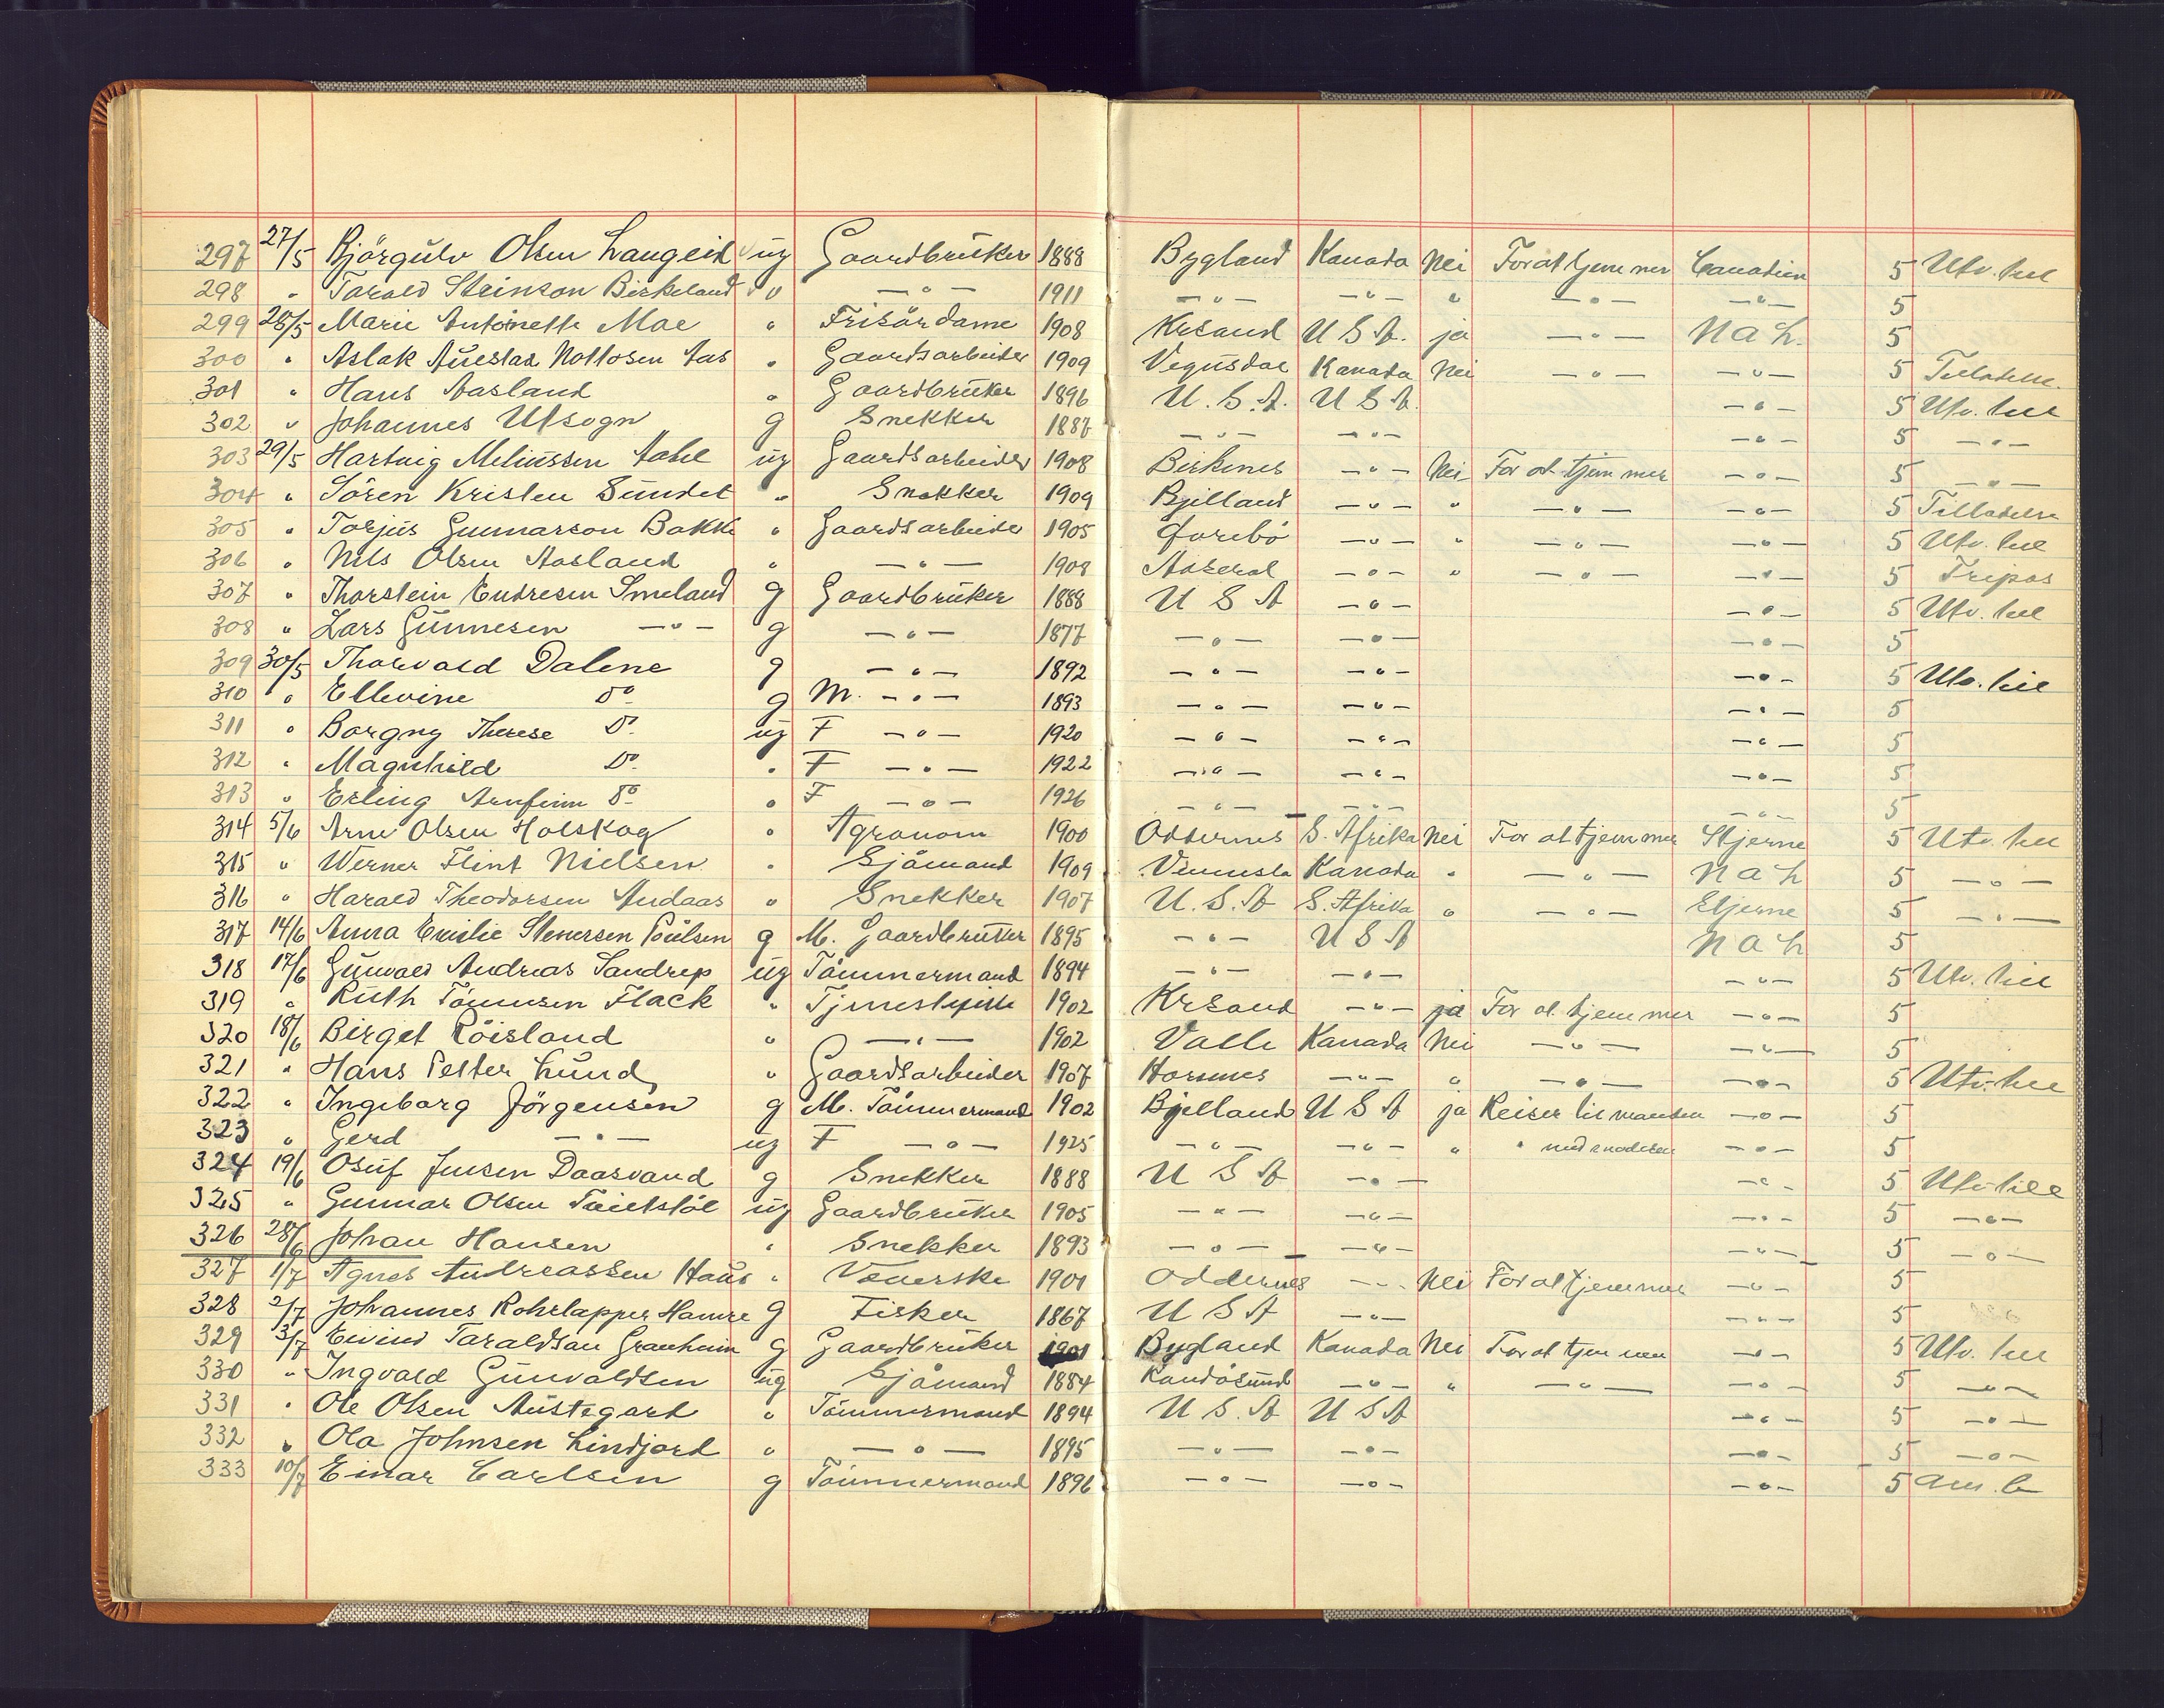 297 27/5 Bjørgulv Olsen Langeid ug Gaardbruker 1888 Bygland Kanada Nei For at tjene mer Canadien 5 Utv. til
298 " Tarald Steinson Birkeland " —"— 1911 —"— —"— " —"— —"— 5
299 28/5 Marie Antoinette Moe " Frisørdame 1908 Krsand U S A. ja —"— N a L. 5
300 " Aslak Auestad Nottosen Aas " Gaardsarbeider 1909 Vegusdal Kanada Nei —"— —"— 5 Tilladelse.
301 " Hans Aasland " Gaardbruker 1896 U. S. A. U S A. —"— 5 Utv. til
302 " Johannes Utsogn g Snekker 1887 —"— —"— —"— 5 —"—
303 29/5 Hartvig Meliussen Aabel ug Gaardsarbeider 1908 Birkenes —"— Nei For at tjene mer —"— 5 —"—
304 " Sören Kristen Sundet " Snekker 1909 Bjelland —"— " —"— —"— 5 Tilladelse
305 " Torjus Gunnarson Bakke " Gaardsarbeider 1905 —"— " —"— —"— 5 Utv. til
306 " Nils Olsen Aasland " —"— 1908 Aaseral —"— " —"— —"— 5 Fripas
307 " Thorstein Endresen Smeland g Gaardbruker 1888 U S A —"— —"— 5 Utv. til
308 " Lars Gunnesen —"— g —"— 1877 —"— —"— —"— 5
309 30/5 Thorvald Dalene g —"— 1892 —"— —"— —"— 5 Utv. til
310 " Ellevine Do g M. —"— 1893 —"— —"— —"— 5
311 " Borgny Therese Do ug F —"— 1920 —"— —"— —"— 5
312 " Magnhild Do " F —"— 1922 —"— —"— —"— 5
313 " Erling Arnfinn Do " F —"— 1926 —"— —"— —"— 5
314 5/6 Arne Olsen Holskog " Agronom 1900 Oddernes S. Afrika Nei For at tjene mer Stjerne 5 Utv. til
315 " Werner Flint Nielsen " Sjömand 1909 Vennesla Kanada " —"— N a L 5 —"—
316 " Harald Theodorsen Andaas " Snekker 1907 U. S. A S. Afrika " —"— Stjerne 5 —"—
317 14/6 Anna Emilie Stenersen Poulsen g M. Gaardbruker 1895 —"— U S A N a L 5
318 17/6 Gunvald Andreas Sandrep ug Tömmermand 1894 —"— —"— —"— 5 Utv. til
319 " Ruth Tönnesen Flack " Tjenestepike 1902 Krsand —"— ja For at tjene mer —"— 5
320 18/6 Birget Röisland " —"— 1902 Valle Kanada Nei —"— —"— 5
321 " Hans Petter Lund " Gaardsarbeider 1907 Hornnes —"— " —"— —"— 5 Utv. til
322 " Ingeborg Jörgensen g M. Tömmermand 1902 Bjelland U S A ja Reiser til manden —"— 5
323 " Gerd —"— ug F —"— 1925 —"— —"— " " med moderen —"— 5
324 19/6 Osuf Jensen Daasvand g Snekker 1888 U S A —"— —"— 5 Utv. till
325 " Gunnar Olsen ug Gaardbruker 1905 —"— —"— —"— 5 —"—
326 28/6 Johan Hansen " Snekker 1893 —"— —"— —"— 5 —"—
327 1/7 Agnes Andreassen Haus " Væverske 1901 Oddernes —"— Nei For at tjene mer —"— 5
328 2/7 Johannes Rohrlapper Hamre g Fisker 1867 U S A —"— —"— 5
329 3/7 Eivind Taraldsan Granheim g Gaardbruker 1901 Bygland Kanada Nei For at tjene mer —"— 5 Utv. til
330 " Ingvald Gunvaldsen ug Sjömand 1884 Randösund —"— " —"— —"— 5 —"—
331 " Ole Olsen Austegard " Tömmermand 1894 U S. A U S A —"— 5 —"—
332 " Ola Johnsen Lindjord " —"— 1895 —"— —"— —"— 5 —"—
333 10/7 Einar Carlsen g Tömmermand 1896 —"— —"— —"— 5 Am. b